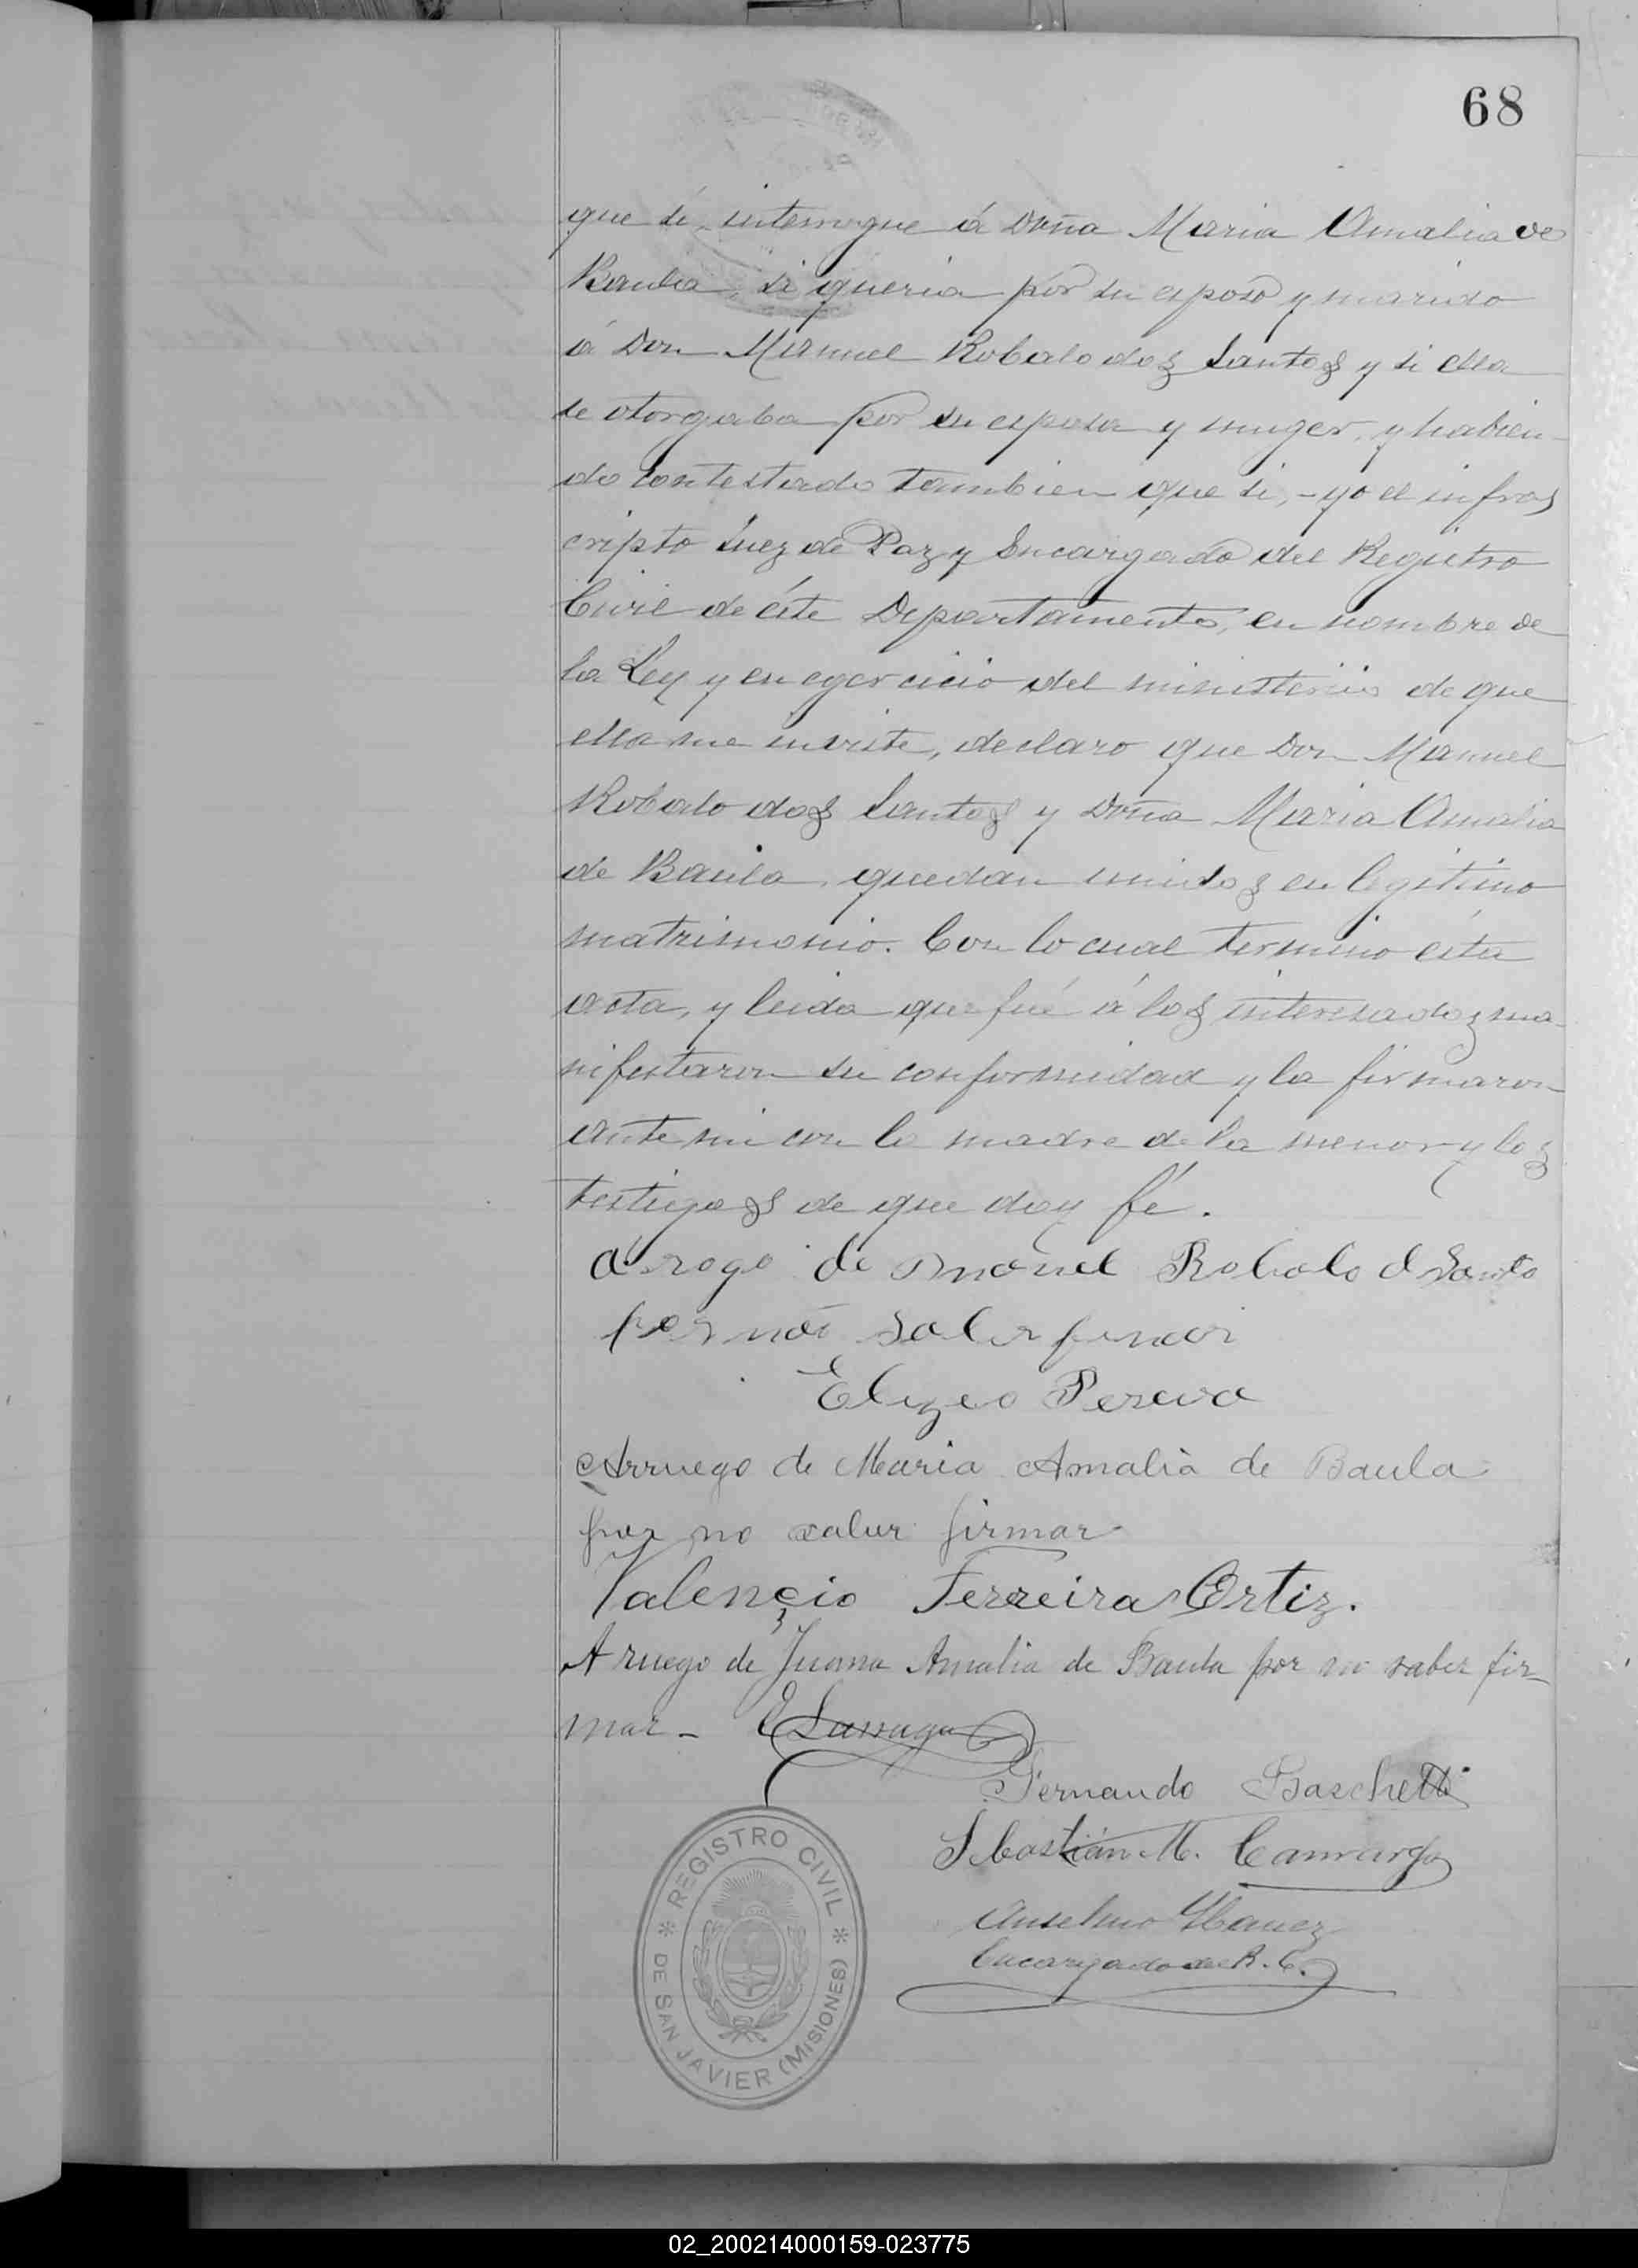 68
que si, interrogue á Doña Maria Amalia de
Baula, si queria por su esposo y marido
á Don Manuel Robalo dos Santos y si ella
se otorgaba por su esposa y muger, y habien-
do contestado tambien que si, - yo el infras
cripto Juez de Paz y Encargado del Registro
Civil de éste Departamento, en nombre de
la Ley y en egercicio del ministerio de que
ella me inviste, declaro que Don Manuel
Robalo dos Santos y Doña Maria Amalia
de Baula, quedan unidos en legitimo
matrimonio. Con lo cual termino ésta
acta, y leida que fué á los interesados ma-
nifestaron su conformidad y la firmaron
ante mi con la madre de la menor y los
testigos de que doy fé.
A rogo de Manuel Robalo d Santo
por não saber firmar
Elizeo Pereira
Arruego de Maria Amalia de Baula
por no saber firmar
Valencio Ferreira Ortiz.
A ruego de Juana Amalia de Baula por no saber fir-
mar -
Fernando Baschetti
Sebastián M. Camargo
Anselmo Ibanez
Encargado del R. C.
* REGISTRO CIVIL *
DE SAN JAVIER (MISIONES)
02_200214000159-023775